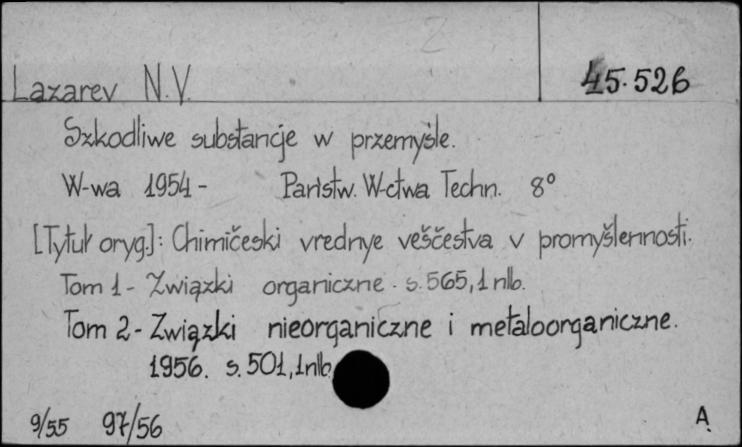 2
Lazarev N.V. 45.526
Szkodliwe substancje w przemyśle.
W-wa 1954 - Państw. W-ctwa Techn. 8°
[Tytuł oryg.]: Chimičeski vrednye veščestva v promyšlennosti.
Tom 1 - Związki organiczne. s. 565, 1 nlb.
Tom 2 - Związki nieorganiczne i metaloorganiczne.
1956. s. 501, 1nlb.
9/55 97/56 A